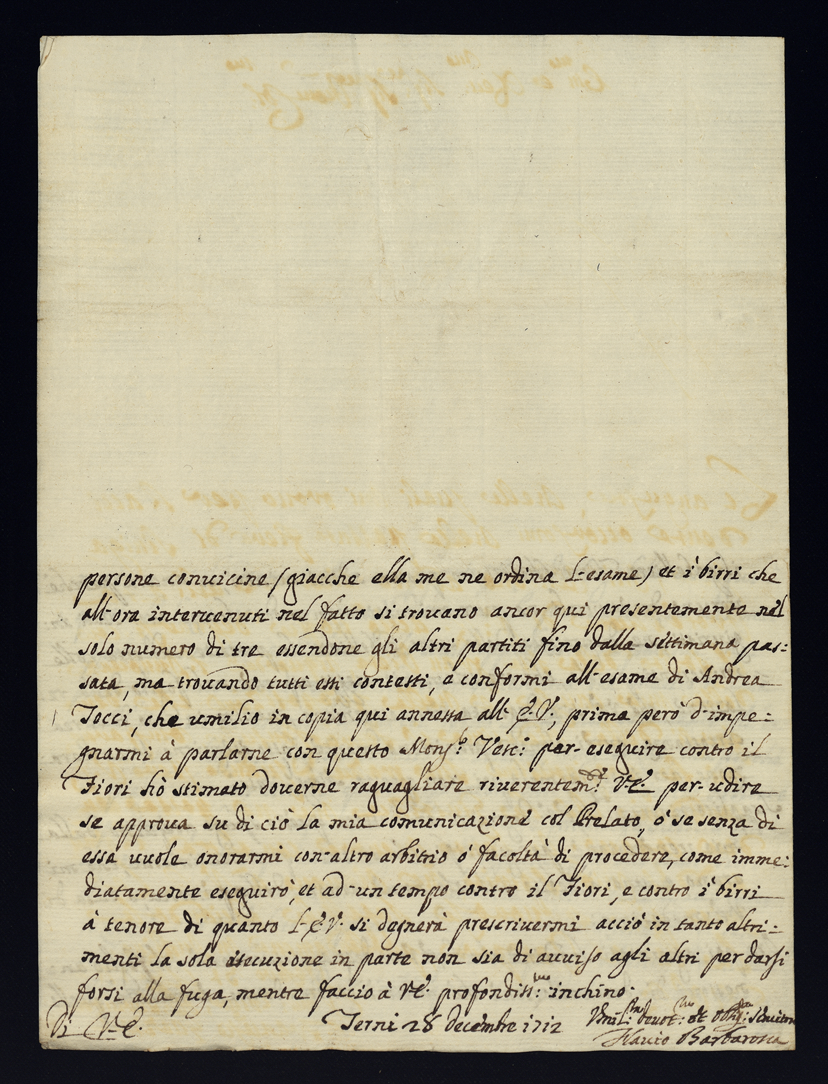 persone convicine (giacche ella me ne ordina l'esame) et i birri che
all'ora intervenuti nel fatto si trovano ancor qui presentemente nel
solo numero di tre essendone gli altri partiti fino dalla settimana pas=
sata, ma trovando tutti essi contesti, e conformi all'esame di Andrea
Tocci, che umilio in copia qui annessa all'E.V., prima però d'impe=
gnarmi à parlarne con questo Mons.r Vesc.o per eseguire contro il
Fiori hò stimato doverne raguagliare riverentem.te V.E. per udire
se approva su di ciò la mia comunicazione col Prelato, ò se senza di
essa vuole onorarmi con altro arbitrio ò facoltà di procedere, come imme=
diatamente eseguirò, et ad un tempo contro il Fiori, e contro i birri
à tenore di quanto l'E.V. si degnerà prescrivermi acciò in tanto altri=
menti la sola esecuzione in parte non sia di avviso agli altri per darsi
forsi alla fuga, mentre faccio à V.E. profondiss.mo inchino.
Di V.E. Terni 28 decembre 1712 Umil.mo devot.mo et obbg.mo servitore
Flavio Barbarossa